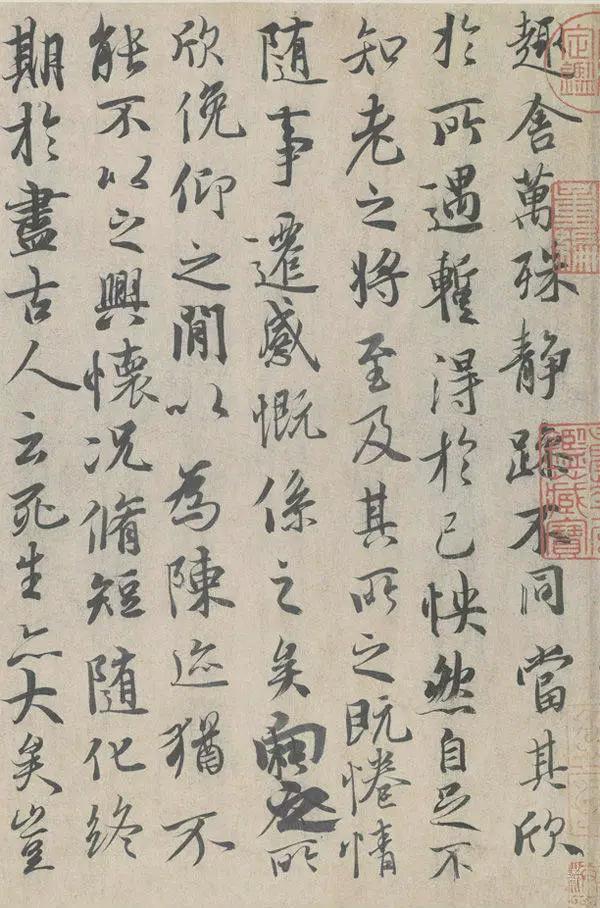 趣舍萬殊静躁不同當其欣
於所遇蹔得於己怏然自足不
知老之將至及其所之既惓情
隨事遷感慨係之矣向之所
欣俛仰之閒以為陳迹猶不
能不以之興懷况脩短隨化終
期於盡古人云死生亦大矣豈